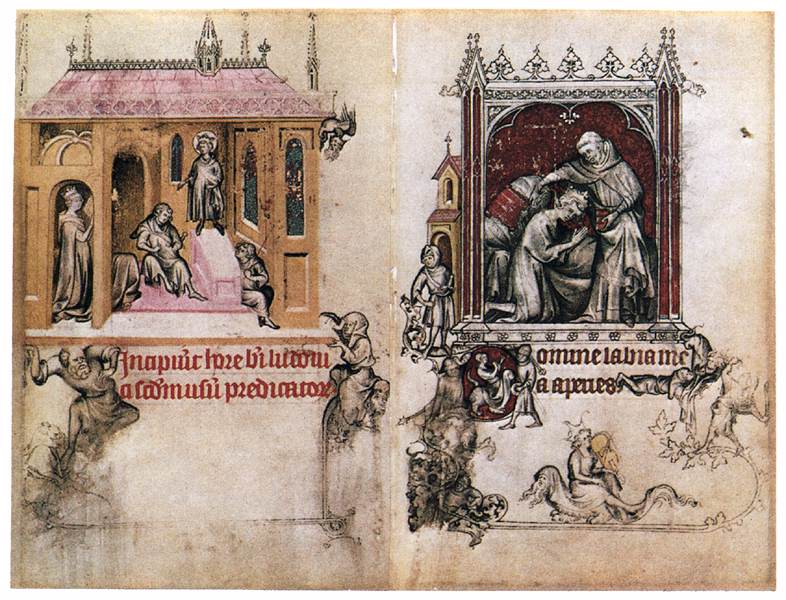 Incipiūt hore bt̄i ludoui
ci scd̄m usū predicatoꝝ
Domine labia me
a aperies